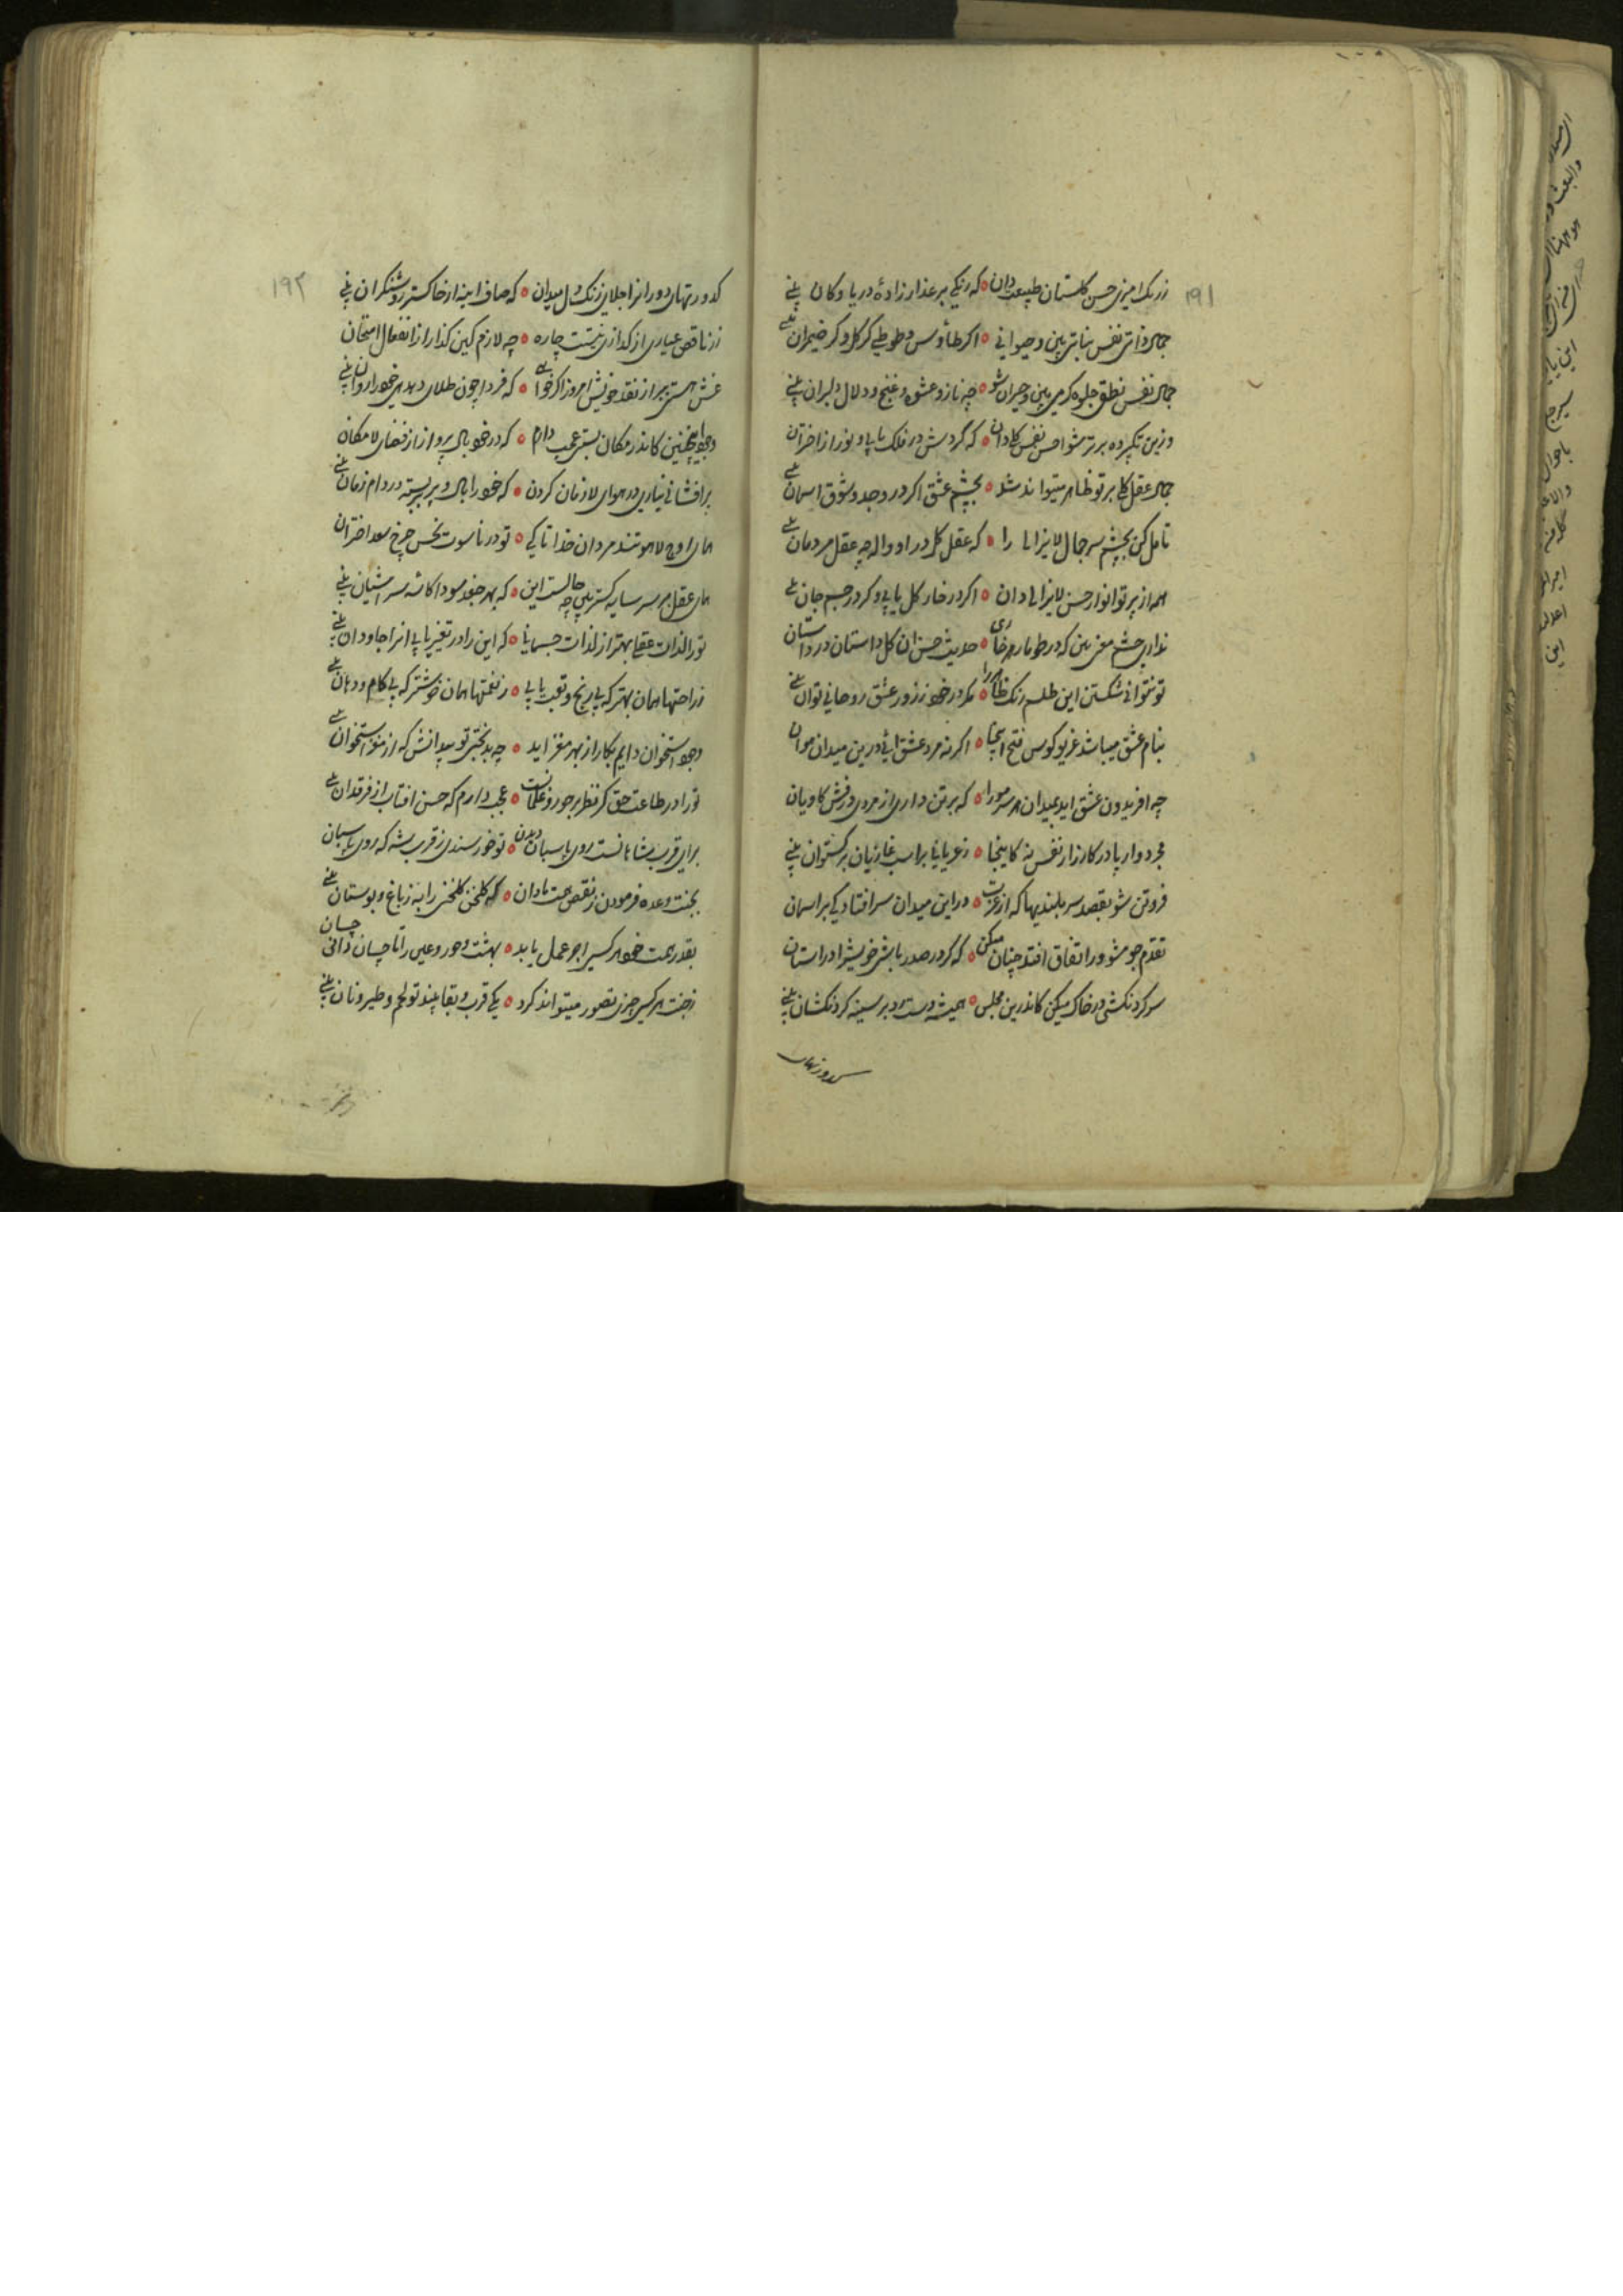 ۱۹۱
زرنک امیزی حسن کلستان طبیعت دان ه که رنکی بر عذار زادهٔ دریا و کان بینی
جمال ذاتی نفس نباتی بین و حیوانی ه اکر طاوس و طوطی کر کل و کر ضیمران بینی
جمال نفس نطق جلوه کر می بین و حیران شو ه چه ناز و عشوه و غنج و دلال دلبران بینی
وزین تکپرده برتر شو احسن نفس کل دان ه که کردش در فلک یابی و نور از اختران
جمال عقل کلی بر تو ظاهر میتواند شد ه بچشم عشق اکر در وجد و شوق اسمان بینی
تامل کن بچشم سر جمال لایزالی را ه که عقل کل در او واله چه عقل مردمان بینی
همه از پرتو انوار حسن لایزالی دان ه اکر در خار کل یابی و کر در جسم جان بینی
نداری چشم معنی بین که در طومار هر خاری ه حدیث حسن ان کل داستان در داستان
تو نتوانی شکستن این طلسم رنک ظاهر را ه مکر در خود ز زور عشق روحانی توان بینی
بنام عشق میباشد غریو کوس فتح اینجا ه اکر نه مرد عشق ائی درین میدان هوان
چه افریدون عشق اید بمیدان هر سر مو را ه که بر تن داری از مردی درفش کاویان
مجرد وار پا در کارزار نفس نه کاینجا ه ز عریانی بر اسب غازیان برکستوان بینی
فروتن شو بقصد سربلندیها که از عزت ه در این میدان سر افتادکی بر اسمان
تقدم جو مشو ور اتفاق افتد چنان میکن ه که کر در صدر باشی خویش را در استان
سر کردنکشی در خاک میکن کاندرین مجلس ه همیشه دست رد بر سینه کردنکشان بینی
کدورتهای
۱۹۲
کدورتهای دوران را جلای زنک دل میدان ه که صاف اینه از خاکستر روشنکران بینی
زر ناقص عیاری از کدازی نیست چاره ه چه لازم کین کدار از انفعال امتحان
غش هستی ببر از نقد خویش امروز اکر خواهی ه که فردا چون طلای دهدهی خود را روان بینی
وجود اینچنین کاندر مکان بستی عجب دارم ه که در خود بال پرواز از فضای لامکان
پر افشانی نیاری در هوای لازمان کردن ه که خود را بال و پر بسته در دام زمان بینی
همای اوج لاهوتند مردان خدا تا کی ه تو در ناسوت نحس چرخ سعد اختران
همای عقل بر سر سایه کستر بین چه حالست این ه که بهر جغد سودا کاسهٔ سر اشیان بینی
تو را لذات عقلی بهتر از لذات جسمانی ه که این را در تغیر یابی انرا جاودان بینی
ز راحتها همان بهتر که بی رنج و تعب یابی ه ز نعمتها همان خوشتر که بی کام و دهان بینی
وجود استخوان دایم بکار از بهر مغز اید ه چه بدبختی تو میدانش که از مغز استخوان بینی
تو را در طاعت حق کر نظر بر حور و غلمانست ه عجب دارم که حسن افتاب از فرقدان بینی
برای قرب شاهانست روی پاسبان دیدن ه تو خورسندی ز قرب شه که روی پاسبان
بجنت وعده فرمودن ز نقص همت نادان ه که کلخن کلخنی را به ز باغ و بوستان بینی
بقدر همت خود هر کسی اجر عمل یابد ه بهشت و حور و عین را تا چسان دانی چسان
ز جنت هر کسی چیزی تصور میتواند کرد ه یکی قرب و بقا بیند تو لحم و طیر و نان بینی